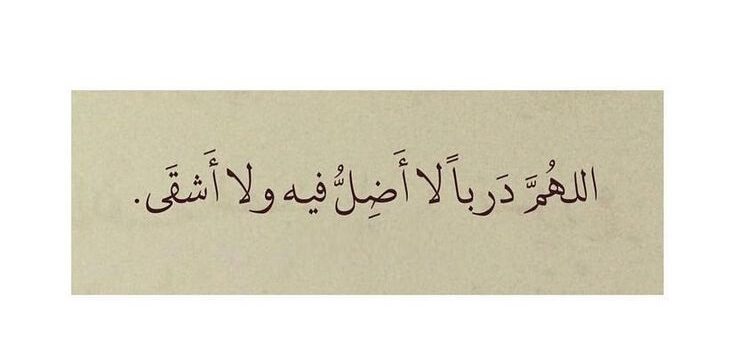 اللهُمَّ دَرباً لا أَضِلُّ فيه ولا أَشقَى.